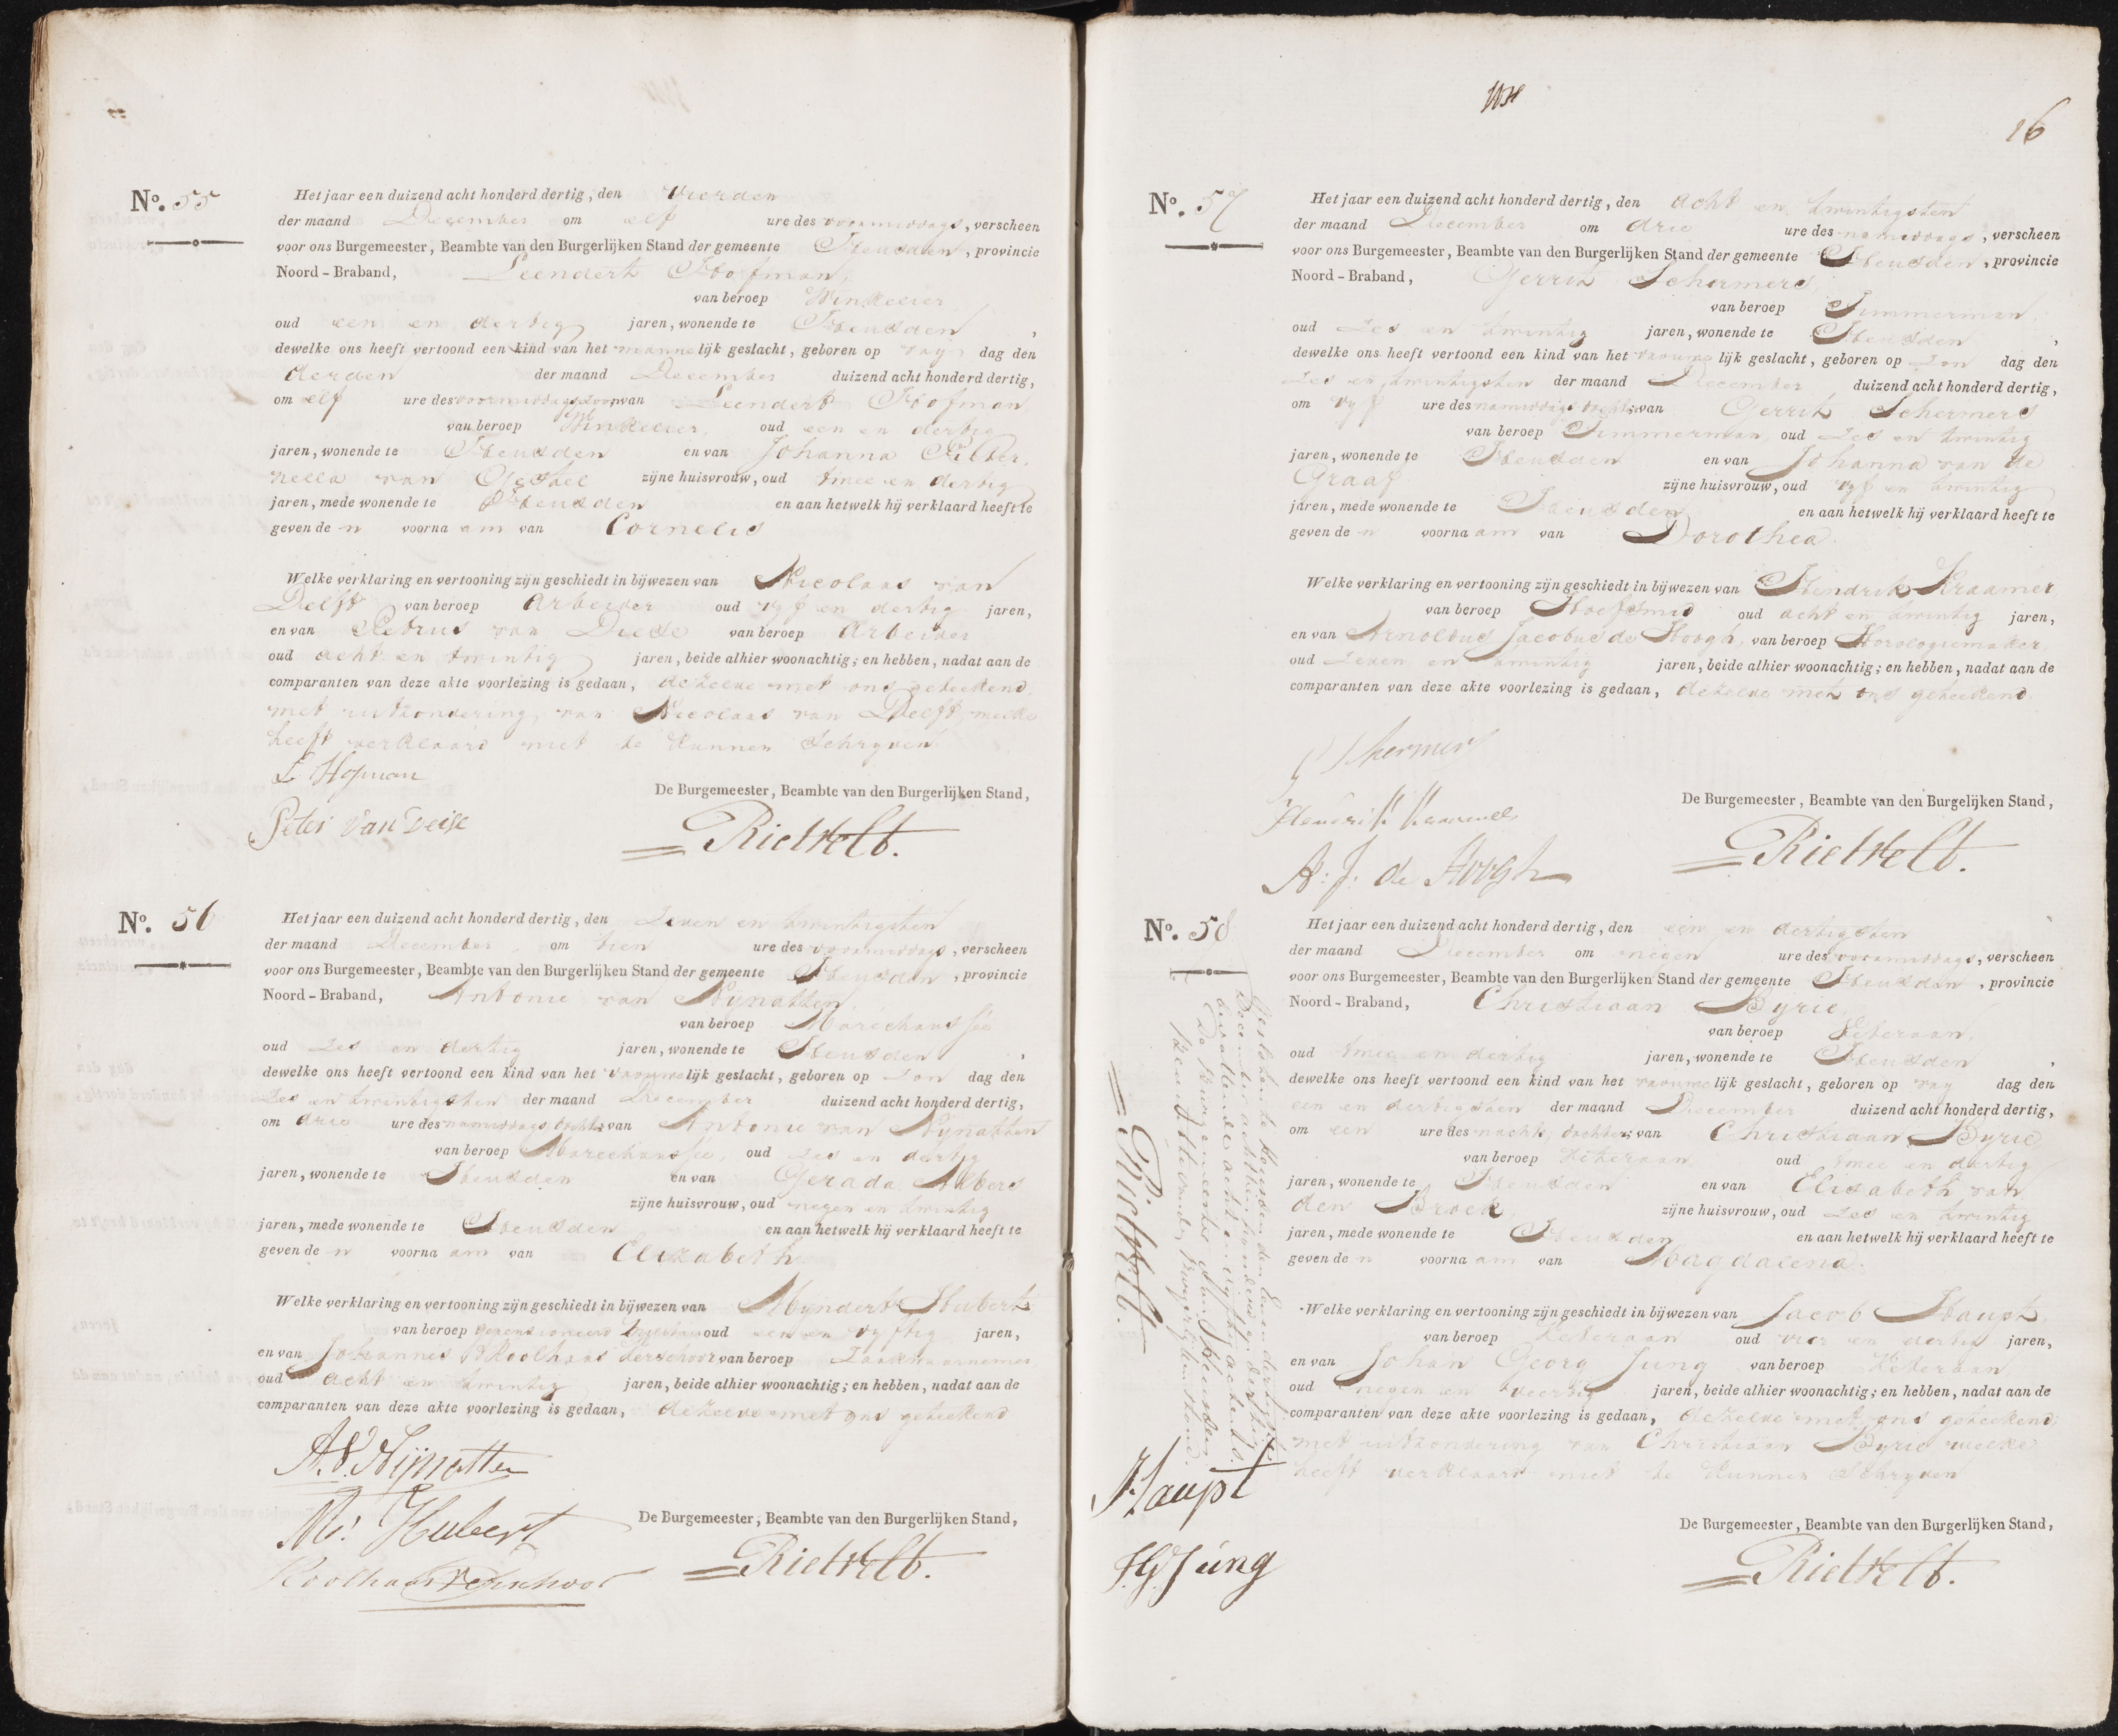 No. 55
Het jaar een duizend acht honderd dertig, den Vierden
der maand December om elf ure des voormiddags, verscheen
voor ons Burgemeester, Beambte van den Burgerlijken Stand der gemeente Heusden, provincie
Noord-Braband, Leendert Hoofman,
van beroep Winkelier
oud een en dertig jaren, wonende te Heusden,
dewelke ons heeft vertoond een kind van het mannelijk geslacht, geboren op vry dag den
derden der maand December duizend acht honderd dertig,
om elf ure des voormiddags, zoon van Leendert Hoofman
van beroep Winkelier, oud een en dertig
jaren, wonende te Heusden en van Johanna Peter
nella van Gestel zijne huisvrouw, oud twee en dertig
jaren, mede wonende te Heusden en aan hetwelk hij verklaard heeft te
geven de n voorna am van Cornelis
Welke verklaring en vertooning zijn geschiedt in bijwezen van Nicolaas van
Delft van beroep Arbeider oud vyf en dertig jaren,
en van Petrus van Diese van beroep Arbeider
oud acht en twintig jaren, beide alhier woonachtig; en hebben, nadat aan de
comparanten van deze akte voorlezing is gedaan, dezelve met ons geteekend,
met uitzondering van Nicolaas van Delft, welke
heeft verklaard niet te kunnen schryven
L Hofman
De Burgemeester, Beambte van den Burgerlijken Stand,
Peter van Deise
Rietvelt.
No. 56
Het jaar een duizend acht honderd dertig, den Zeven en twintigsten
der maand December om tien ure des voormiddags, verscheen
voor ons Burgemeester, Beambte van den Burgerlijken Stand der gemeente Heusden, provincie
Noord-Braband, Antonie van Nynatten
van beroep Marechaussee
oud Zes en dertig jaren, wonende te Heusden,
dewelke ons heeft vertoond een kind van het vrouwelijk geslacht, geboren op Zon dag den
Zes en twintigsten der maand December duizend acht honderd dertig,
om drie ure des namiddags dochter van Antonie van Nynatten
van beroep Marechaussee, oud Zes en dertig
jaren, wonende te Heusden en van Gerada
zijne huisvrouw, oud negen en twintig
jaren, mede wonende te Heusden en aan hetwelk hij verklaard heeft te
geven de n voorna am van Elizabeth
Welke verklaring en vertooning zijn geschiedt in bijwezen van Myndert Hubert
van beroep gepensioneerd oud een en vyftig jaren,
en van Johannes Koolhaas Verschoor van beroep Zaakwaarnemer
oud acht en twintig jaren, beide alhier woonachtig; en hebben, nadat aan de
comparanten van deze akte voorlezing is gedaan, dezelve met ons geteekend
A.V. Nijnatten
M: Hubert
De Burgemeester, Beambte van den Burgerlijken Stand,
Koolhaas Verschoor
Rietvelt.
16
No. 57
Het jaar een duizend acht honderd dertig, den acht en twintigsten
der maand December om drie ure des namiddags, verscheen
voor ons Burgemeester, Beambte van den Burgerlijken Stand der gemeente Heusden, provincie
Noord-Braband, Gerrit Schermers,
van beroep Timmerman,
oud Zes en twintig jaren, wonende te Heusden,
dewelke ons heeft vertoond een kind van het vrouwelijk geslacht, geboren op Zon dag den
Zes en twintigsten der maand December duizend acht honderd dertig,
om vyf ure des namiddags dochter van Gerrit Schermers
van beroep Timmerman, oud Zes en twintig
jaren, wonende te Heusden en van Johanna van de
Graaf zijne huisvrouw, oud vyf en twintig
jaren, mede wonende te Heusden en aan hetwelk hij verklaard heeft te
geven de n voorna am van Dorothea.
Welke verklaring en vertooning zijn geschiedt in bijwezen van Hendrik Kraamer
van beroep Hoefsmid oud acht en twintig jaren,
en van Arnoldus Jacobus de Hoogh, van beroep Horologiemaker
oud Zeven en twintig jaren, beide alhier woonachtig; en hebben, nadat aan de
comparanten van deze akte voorlezing is gedaan, dezelve met ons geteekend.
G Schermers
De Burgemeester, Beambte van den Burgelijken Stand,
Hendrik Kraamer
Rietvelt.
A: J: de Hoogh
No. 58
Het jaar een duizend acht honderd dertig, den een en dertigsten
der maand December om negen ure des voormiddags, verscheen
voor ons Burgemeester, Beambte van den Burgerlijken Stand der gemeente Heusden, provincie
Noord-Braband, Christiaan Byrie,
van beroep Veteraan,
oud twee en dertig jaren, wonende te Heusden,
dewelke ons heeft vertoond een kind van het vrouwelijk geslacht, geboren op vry dag den
een en dertigsten der maand December duizend acht honderd dertig,
om een ure des nachts, dochter; van Christiaan Byrie
van beroep Veteraan oud twee en dertig
jaren, wonende te Heusden en van Elisabeth van
den Broek zijne huisvrouw, oud Zes en twintig
jaren, mede wonende te Heusden en aan hetwelk hij verklaard heeft te
geven de n voorna am van Magdalena.
Welke verklaring en vertooning zijn geschiedt in bijwezen van Jacob Haupt
van beroep Veteraan oud vier en dertig jaren,
en van Johan Georg Jung van beroep Veteraan
oud negen en veertig jaren, beide alhier woonachtig; en hebben, nadat aan de
comparanten van deze akte voorlezing is gedaan, dezelve met ons geteekend
met uitzondering van Christiaan Byrie welke
heeft verklaard niet te kunnen schryven
De Burgemeester, Beambte van den Burgerlijken Stand,
Rietvelt.
Gesloten te Heusden den Een en dertigsten
December achttien honderd en dertig
bevattende acht en vyftig actens.
De Burgemeester van Heusden
Beambte van den Burgerlyken Stand
Rietvelt.
Haupt
J.G. Jung